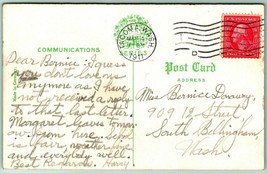 COMMUNICATIONS
TACOMA, WASH.
Post Card
ADDRESS
Dear Bernice: I guess
you don't love me
anymore as I have
not received a reply
to that last letter.
Margaret leaves tomor-
ow from here. School
is fair, weather fine
and everybody well.
Best Regards. Harry
Miss Bernice
909 12 Street
South Bellingham
Wash.